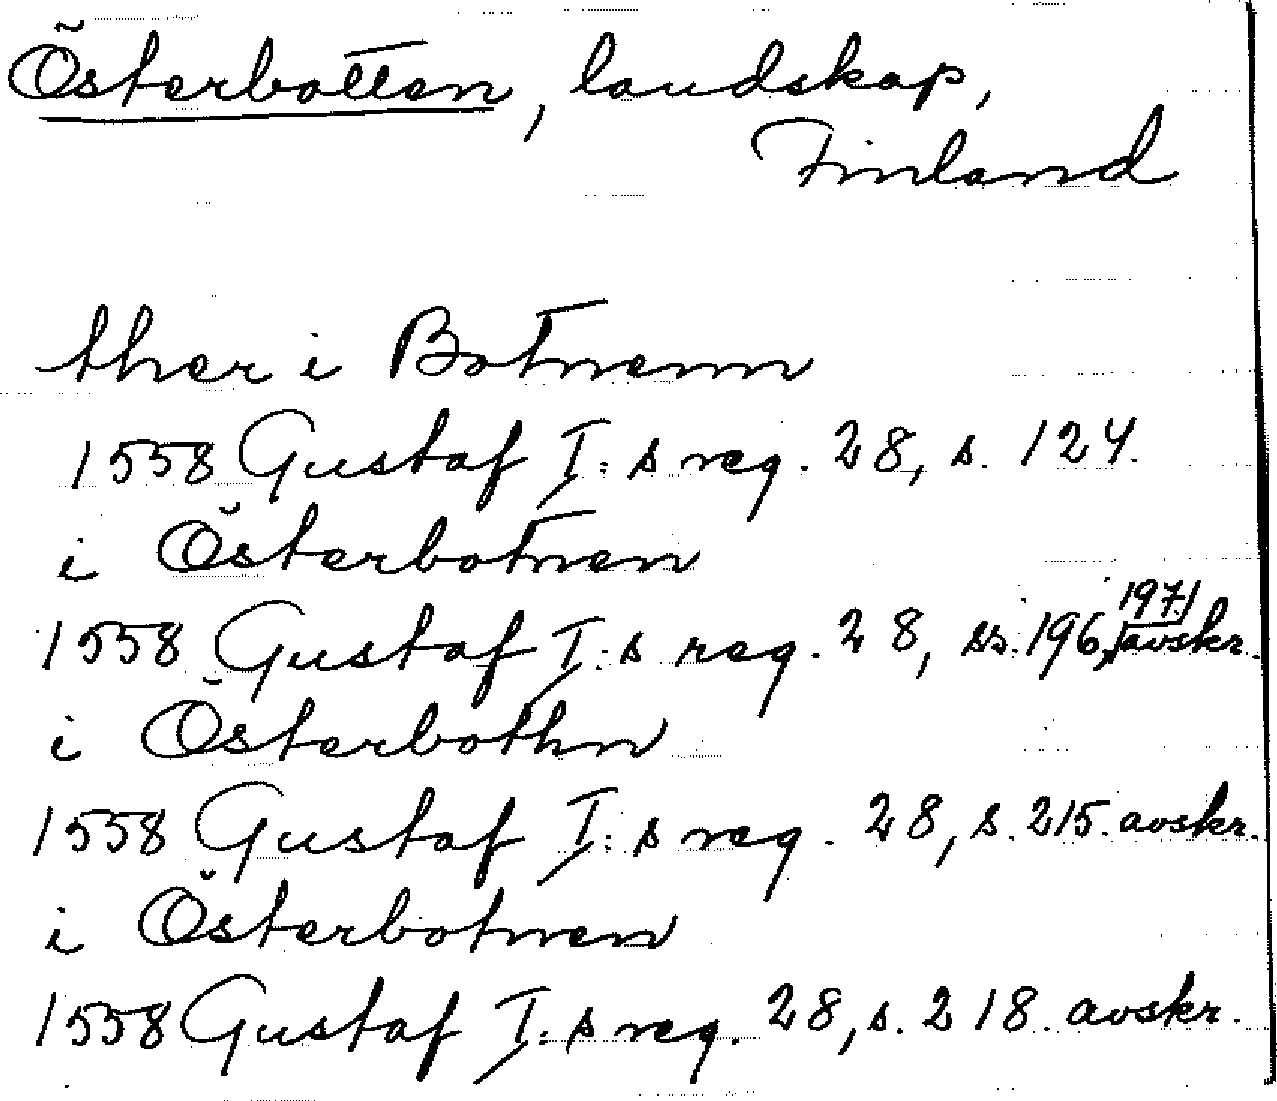 Österbotten, landskap,
Finland
ther i Botnenn
1558 Gustaf I:s reg. 28, s. 124.
i Österbotnen
1558 Gustaf I:s reg. 28, ss. 196, 197./avskr.
i Österbothn
1558 Gustaf I:s reg. 28, s. 215. avskr.
i Österbotnen
1558 Gustaf I:s reg. 28, s. 218. avskr.